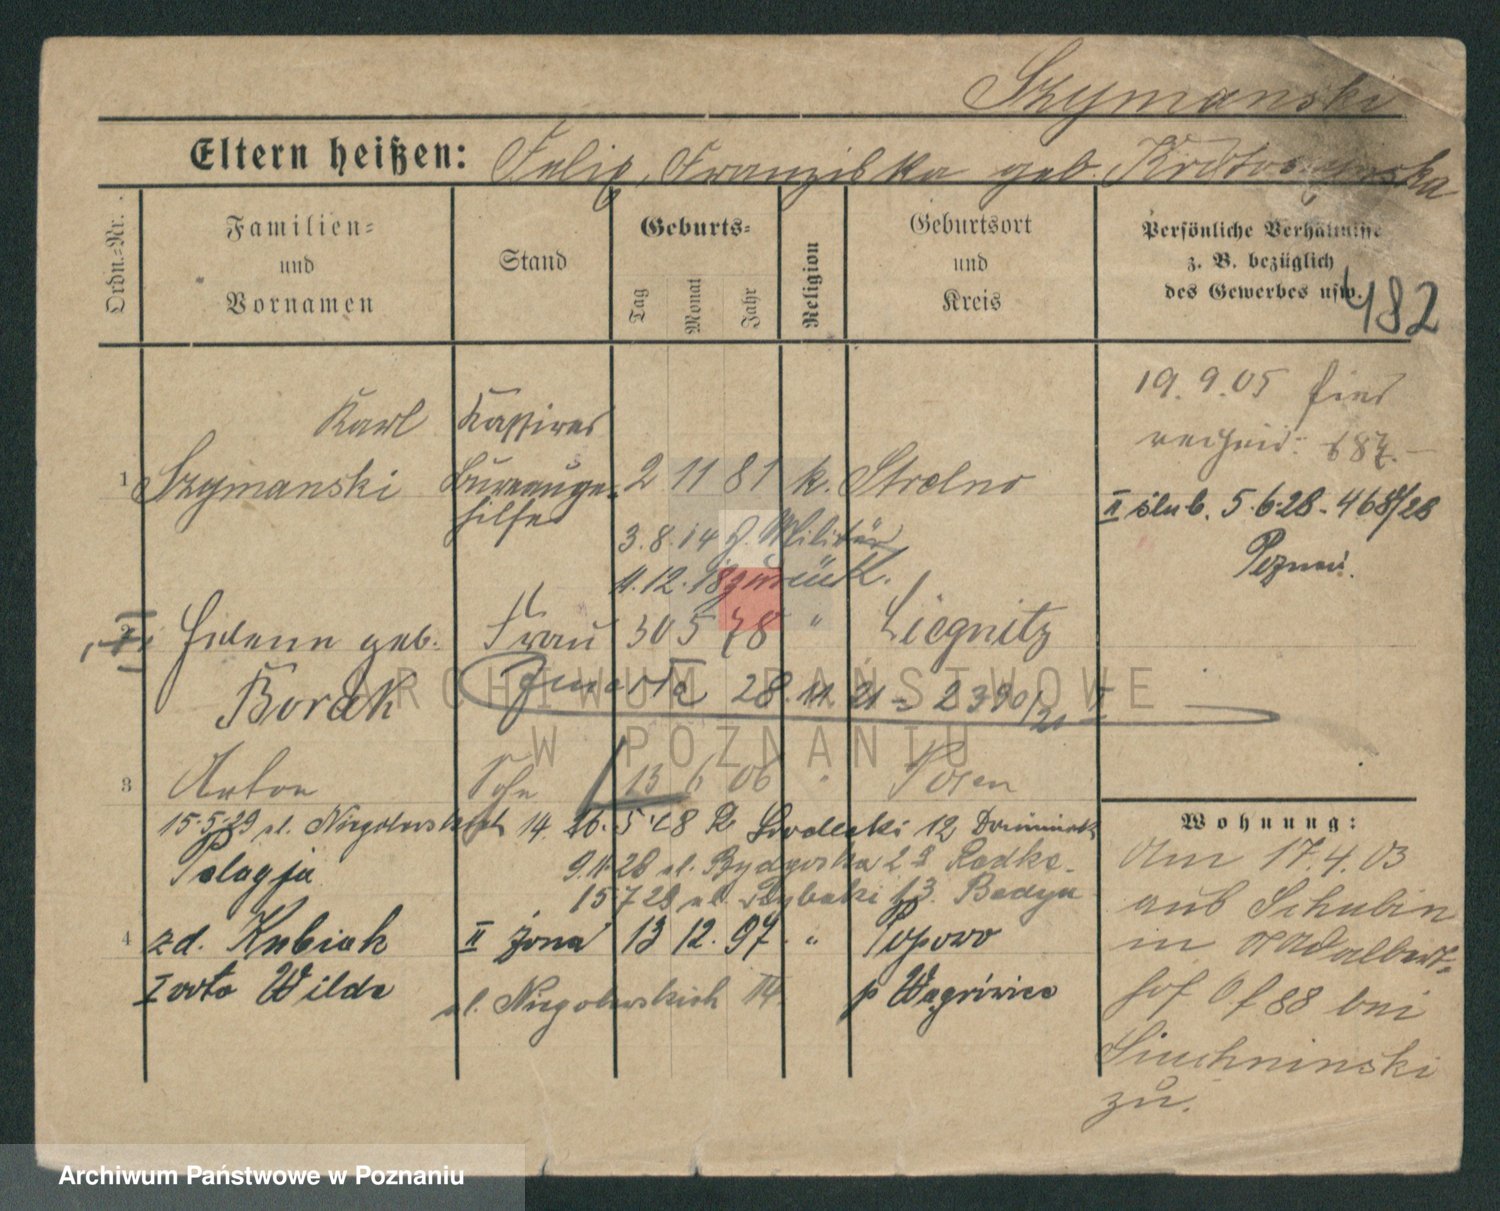 Szymanski
Eltern heißen: Felix, Franziska geb. Krotoszynska
Ordn.-Nr.
Familien-
und
Vornamen
Stand
Geburts-
Tag
Monat
Jahr
Religion
Geburtsort
und
Kreis
Persönliche Verhältnisse
z. B. bezüglich
des Gewerbes usw.
482
19.9.05 hier
687.
Karl Kassierer
1 Szymanski Bureauge-
hilfe
2 11 81 k. Strelno
II ślub. 5.6.28 - 468/28
Poznań.
3.8.14 z. Militär
11.12.18 zurück.
2 Helene geb. Frau 30 5 78 " Liegnitz
Borak
zmarła 28.11.21 = 2390/21
3 Anton Sohn 13 6 06 " Posen
15.5.29 ul. Niegolewskich 14. 26.5.28 Grodecki 12
9.11.28 ul. Bydgoska
Pelagja
15 7 28 ul. Rybaki 13.
4 zd. Kubiak II żona 13 12. 97 " Popowo
I voto Wilde ul. Niegolewskich 14 p Wągrówiec
Wohnung:
Am 17.4.03
aus Schubin
in
hof 88 bei
zu.
ARCHIWUM PAŃSTWOWE
W POZNANIU
Archiwum Państwowe w Poznaniu